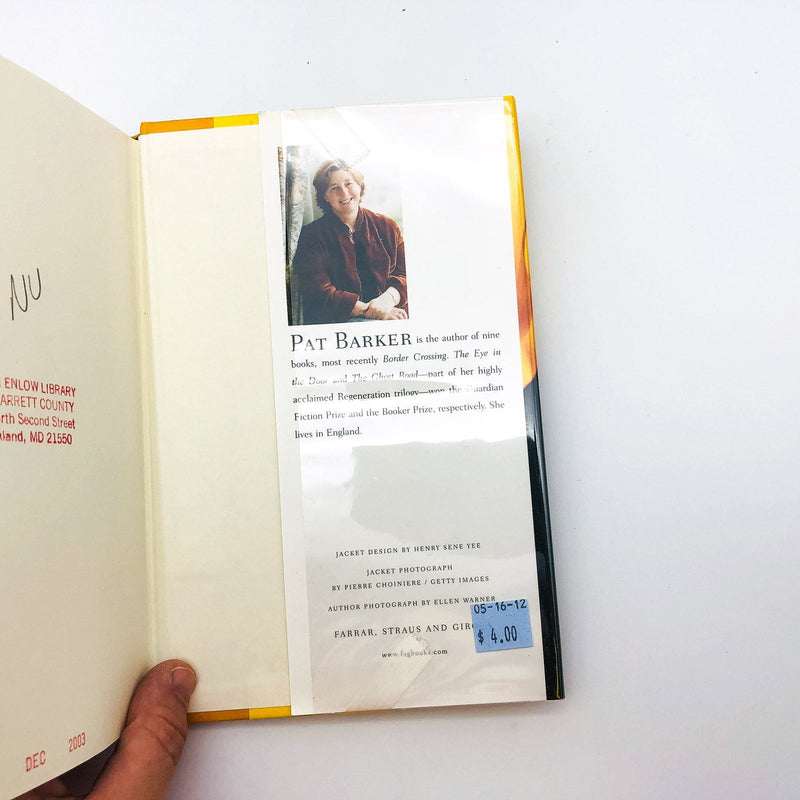 NU
ENLOW LIBRARY
ARRETT COUNTY
rth Second Street
kland, MD 21550
DEC 2003
PAT BARKER is the author of nine
books, most recently Border Crossing. The Eye in
the Door and The Ghost Road—part of her highly
acclaimed Regeneration trilogy—won the Guardian
Fiction Prize and the Booker Prize, respectively. She
lives in England.
JACKET DESIGN BY HENRY SENE YEE
JACKET PHOTOGRAPH
BY PIERRE CHOINIERE / GETTY IMAGES
AUTHOR PHOTOGRAPH BY ELLEN WARNER
05-16-12
$ 4.00
FARRAR, STRAUS AND GIRO
www.fsgbooks.com